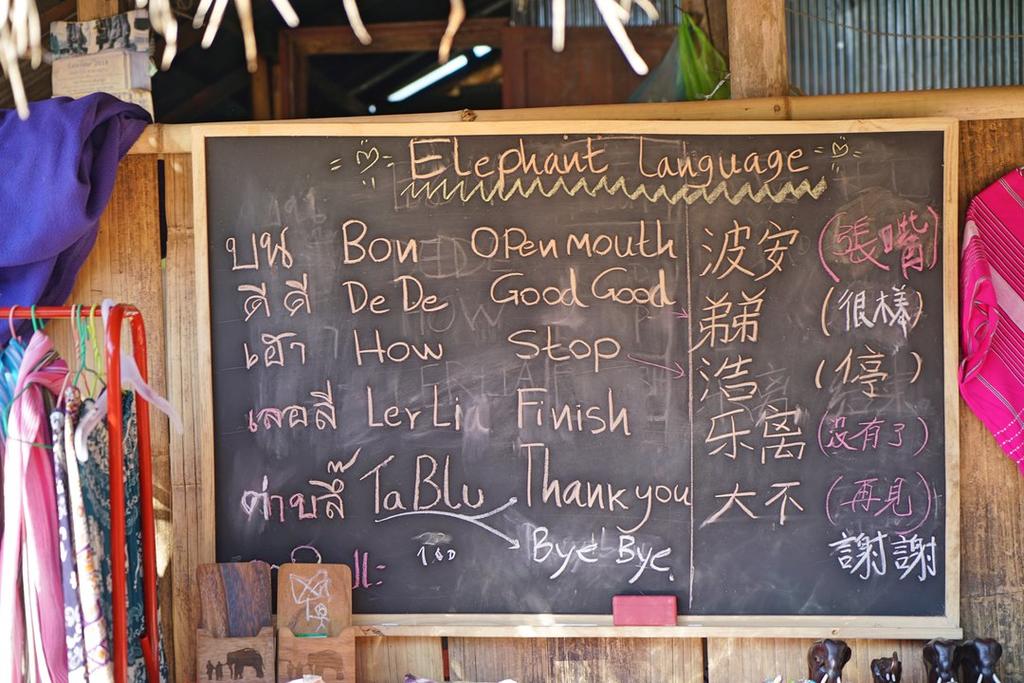 Elephant Language
บน Bon Open mouth 波安 (張嘴)
ดี ดี De De Good Good 弟弟 (很棒)
เฮา How Stop 浩 (停)
เลอลี Ler Li Finish 乐离 (没有了)
ต่าบลื๊ Ta Blu Thank you 大不 (再見)
Bye Bye 謝謝